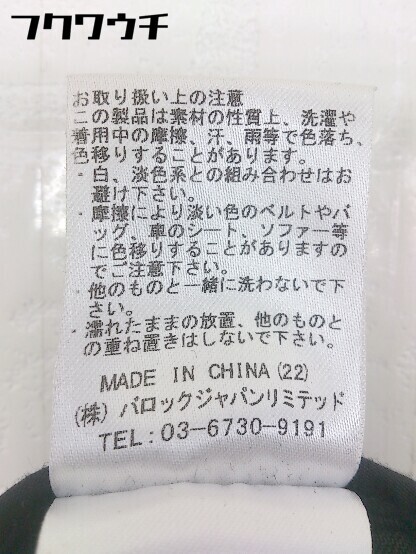 フクワウチ
お取り扱い上の注意
この製品は素材の性質上、洗濯や
着用中の摩擦、汗、雨等で色落ち、
色移りすることがあります。
・白、淡色系との組み合わせはお
避け下さい。
・摩擦により淡い色のベルトやバ
ッグ、車のシート、ソファー等
に色移りすることがありますの
でご注意下さい。
・他のものと一緒に洗わないで下
さい。
・濡れたままの放置、他のものと
の重ね置きはしないで下さい。
MADE IN CHINA (22)
(株) バロックジャパンリミテッド
TEL: 03-6730-9191